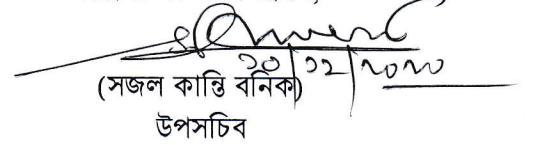 ১০/১২/২০২০
(সজল কান্তি বনিক)
উপসচিব